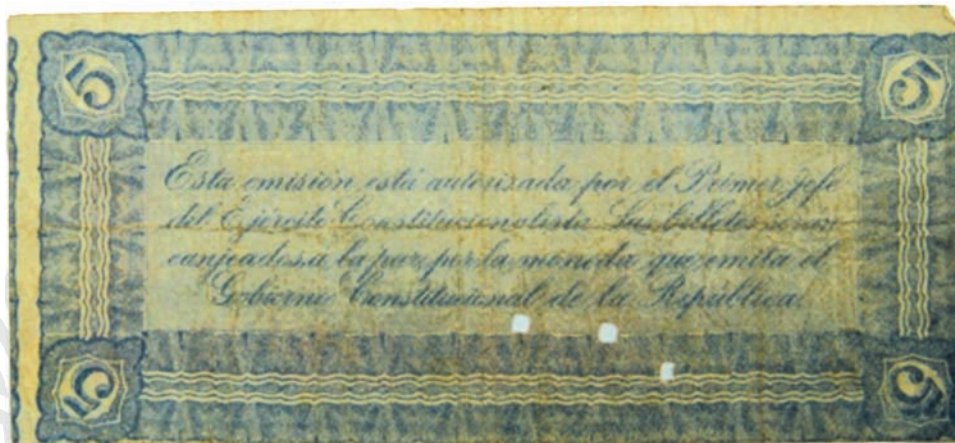 5 5
Esta emisión está autorizada por el Primer Jefe
del Ejército Constitucionalista Los billetes serán
canjeados, a la par, por la moneda que emita el
Gobierno Constitucional de la República
5 5